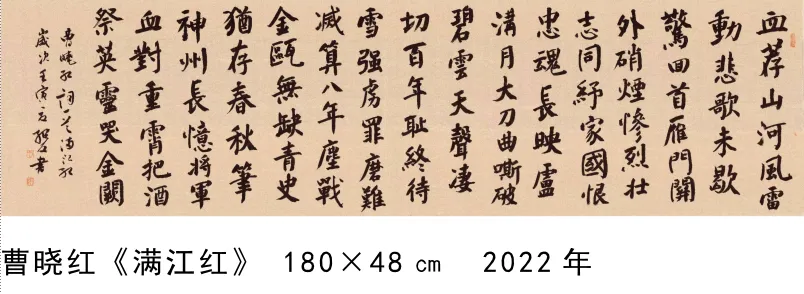 血荐山河風雷
動悲歌未歇
驚回首雁門關
外硝煙慘烈壯
志同紓家國恨
忠魂長映盧
溝月大刀曲嘶破
碧雲天聲淒
切百年恥終待
雪强虜罪磨難
减算八年塵戰
金甌無缺青史
猶存春秋筆
神州長憶將軍
血對重霄把酒
祭英靈哭金闕
曹曉紅詞滿江紅
歲次壬寅夏書
曹晓红《满江红》 180×48 cm 2022 年